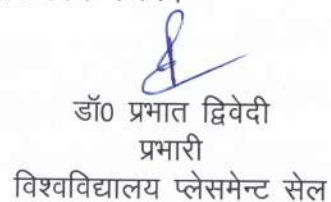 डॉ0 प्रभात द्विवेदी
प्रभारी
विश्वविद्यालय प्लेसमेन्ट सेल